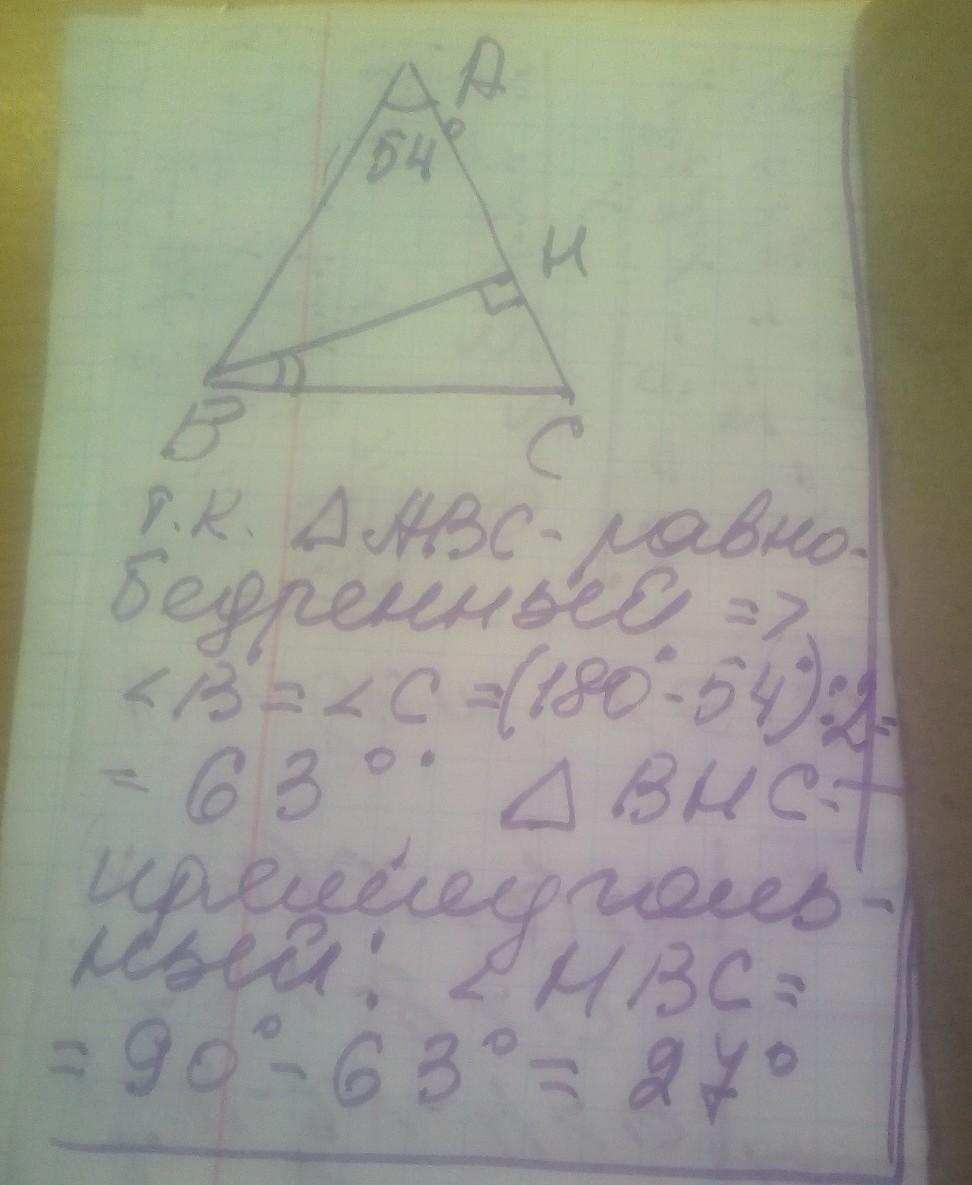 A
54°
H
B
C
т.к. △ABC - равно-
бедренный =>
∠B = ∠C = (180° - 54°):2=
= 63°. △BHC -
прямоуголь-
ный: ∠HBC =
= 90° - 63° = 27°